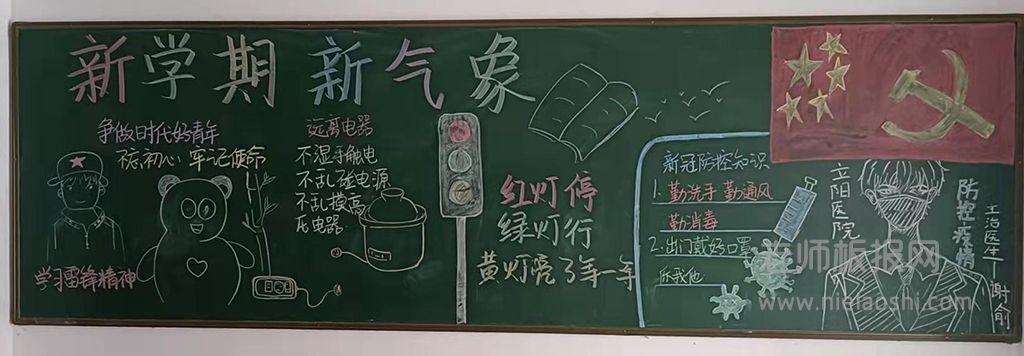 新学期 新气象
争做时代好青年
不忘初心 牢记使命
学习雷锋精神
远离电器
不湿手触电
不乱碰电源
不乱摸高
压电器
红灯停
绿灯行
黄灯亮了等一等
新冠防控知识
1.勤洗手 勤通风
勤消毒
2.出门戴好口罩
你我他
立阳医院
防控疫情
主治医生—谢俞
老师板报网
www.nielaoshi.com